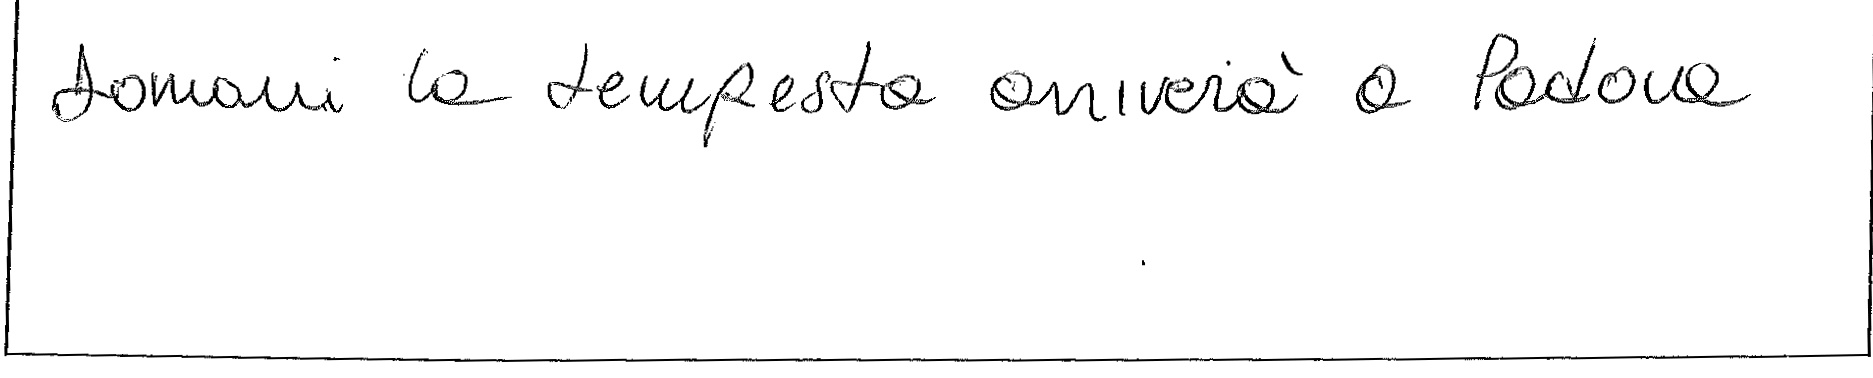 domani la tempesta arriverà a Padova